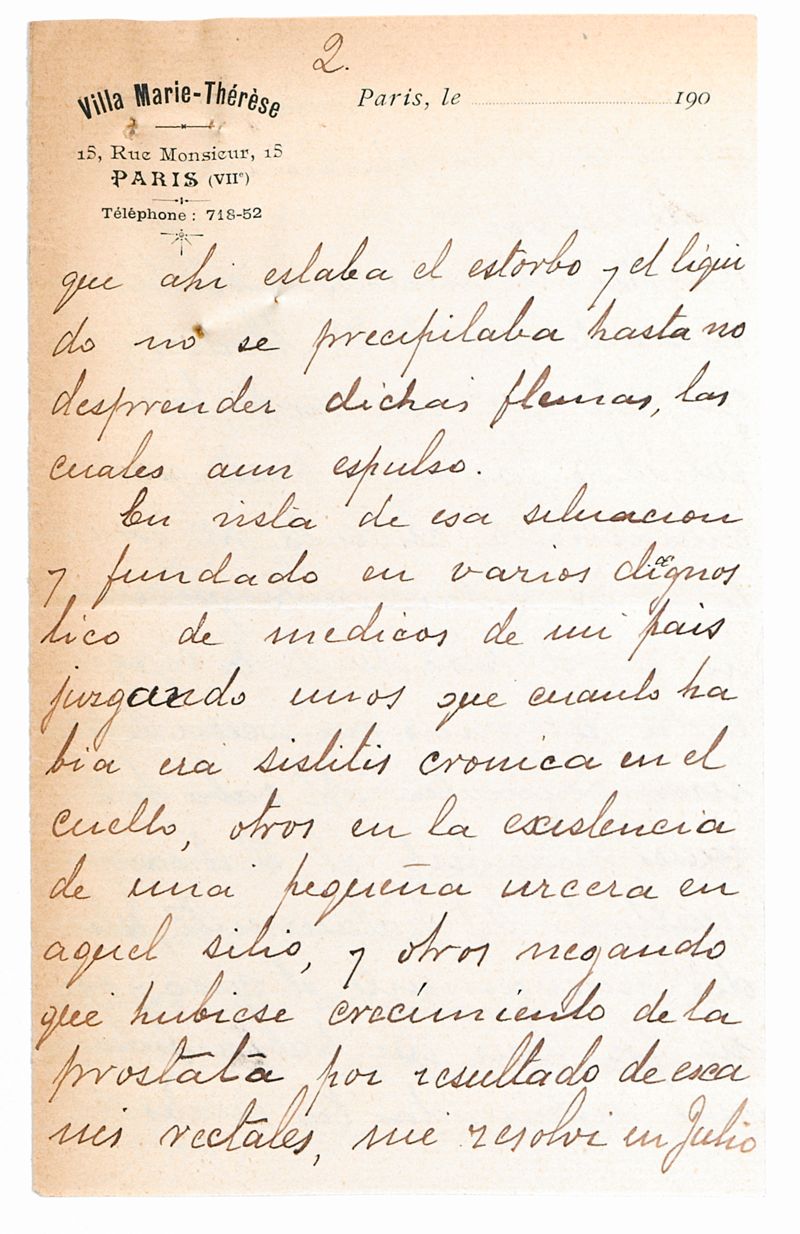 2.
Villa Marie-Thérèse
15, Rue Monsieur, 15
PARIS (VIIe)
Téléphone : 718-52
Paris, le 190
que ahi estaba el estorbo y el liqui
do no se precipitaba hasta no
desprender dichas flemas, las
cuales aun espulso.
En vista de esa situacion
y fundado en varios diagnos
tico de medicos de mi pais
juzgando unos que cuanto ha
bia era sistitis cronica en el
cuello, otros en la existencia
de una pequeña urcera en
aquel sitio, y otros negando
que hubiese crecimiento de la
prostata por resultado de exa
nes rectales, me resolvi en Julio